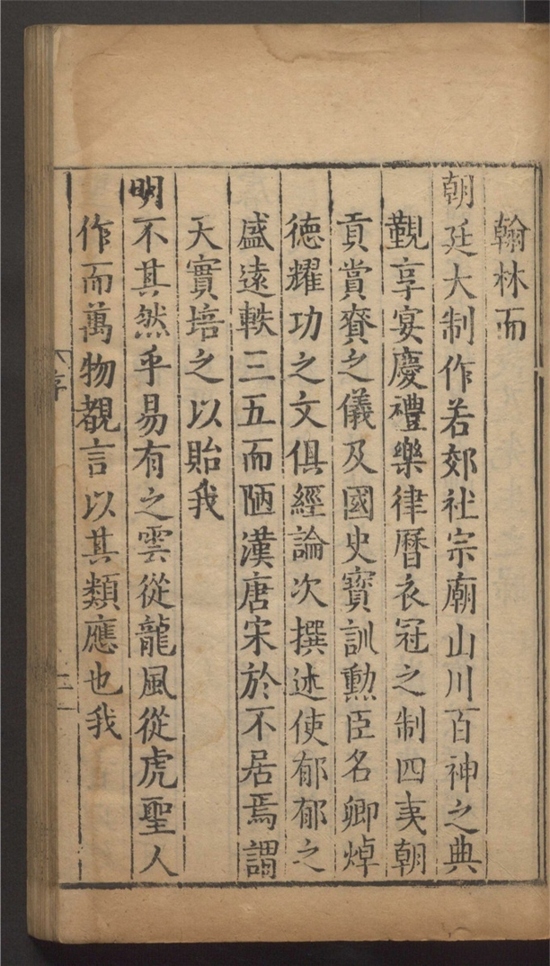 翰林而
朝廷大制作若郊社宗廟山川百神之典
覲享宴慶禮樂律曆衣冠之制四夷朝
貢賞賚之儀及國史寶訓勲臣名卿焯
德耀功之文俱經論次撰述使郁郁之
盛遠軼三五而陋漢唐宋於不居焉謂
天實培之以貽我
明不其然乎易有之雲從龍風從虎聖人
作而萬物覩言以其類應也我
序